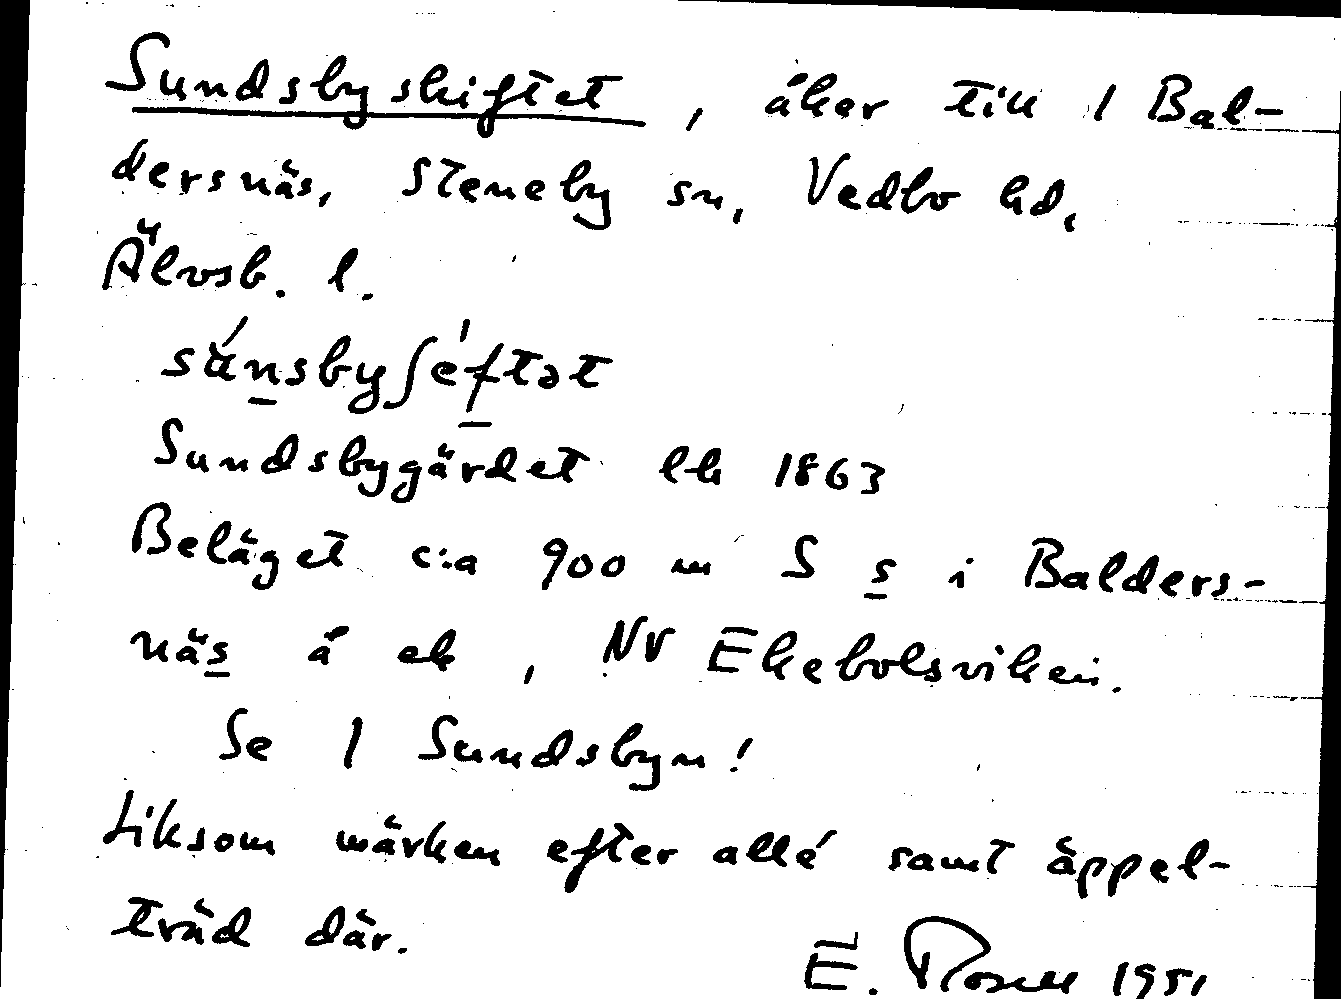 Sundsbyskiftet, åker till 1 Bal-
dersnäs, Steneby sn, Vedbo hd,
Älvsb. l.
súnsbyʃéftət
Sundsbygärdet lk 1863
Beläget c:a 900 m S s i Balders-
näs å ek, NV Ekebolsviken.
Se 1 Sundsbyn!
Liksom märken efter allé samt äppel-
träd där.
E. Rosell 1951